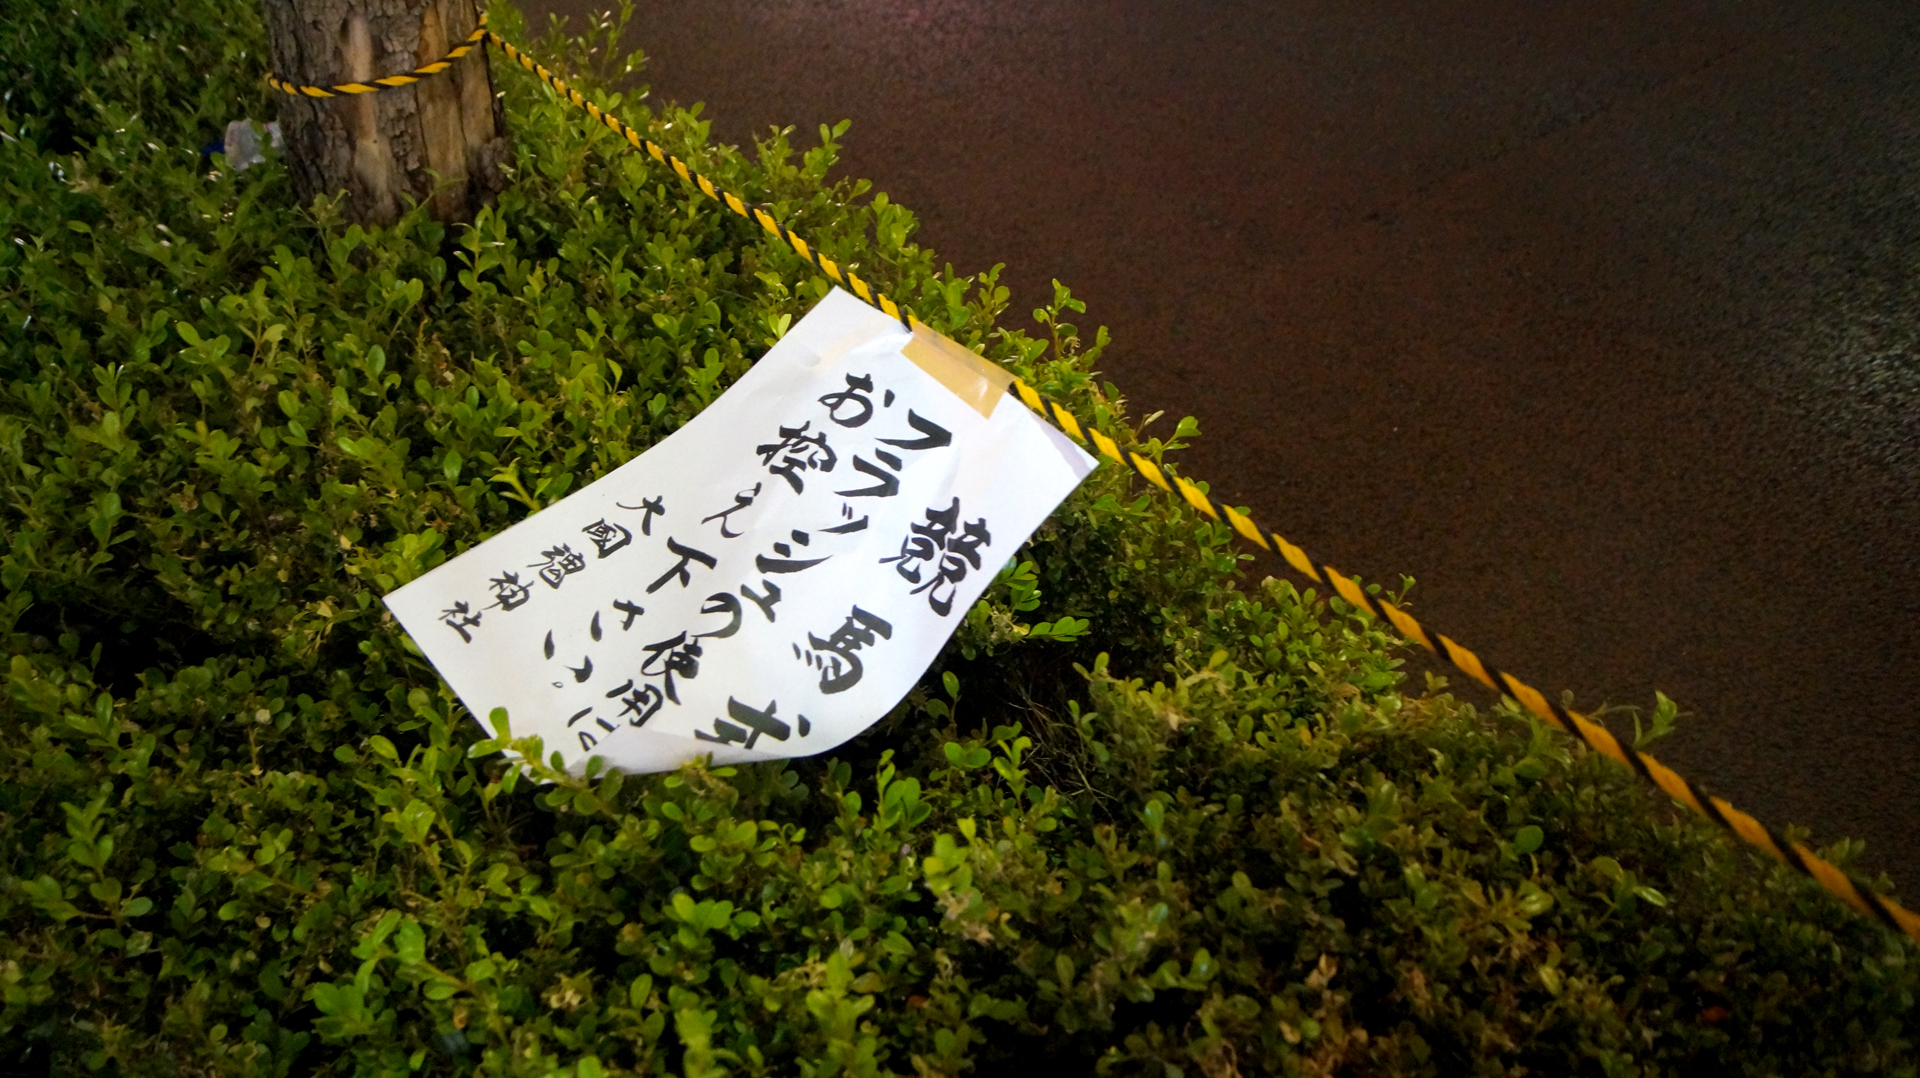 競馬式
フラッシュの使用に
お控え下さい。
大國魂神社